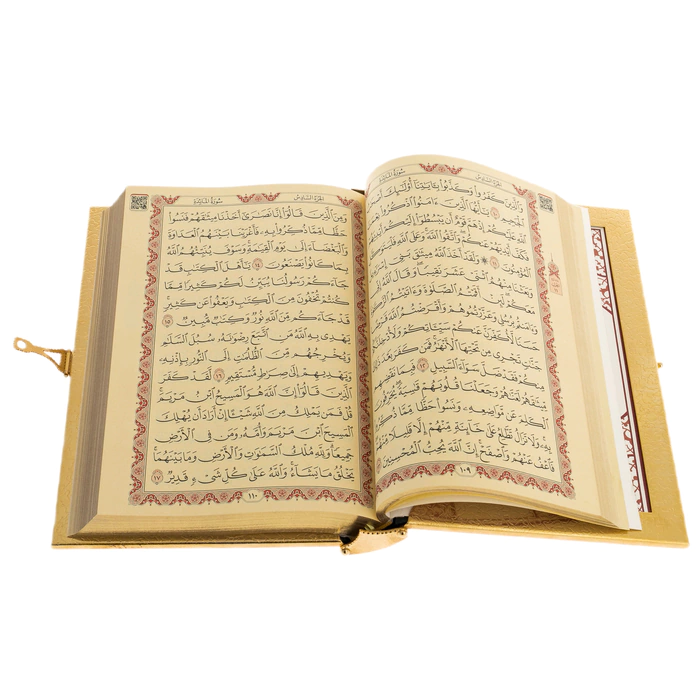 الجزء السادس
سورة المائدة
وَالَّذِينَ كَفَرُوا وَكَذَّبُوا بِآيَاتِنَا أُولَٰئِكَ
الْجَحِيمِ ﴿١٠﴾ يَا أَيُّهَا الَّذِينَ آمَنُوا اذْكُرُوا
اللَّهِ عَلَيْكُمْ إِذْ هَمَّ قَوْمٌ أَنْ يَبْسُطُوا إِلَيْكُمْ
فَكَفَّ أَيْدِيَهُمْ عَنْكُمْ وَاتَّقُوا اللَّهَ وَعَلَى اللَّهِ
الْمُؤْمِنُونَ ﴿١١﴾ وَلَقَدْ أَخَذَ اللَّهُ مِيثَاقَ بَنِي
وَبَعَثْنَا مِنْهُمُ اثْنَيْ عَشَرَ نَقِيبًا وَقَالَ اللَّهُ
مَعَكُمْ لَئِنْ أَقَمْتُمُ الصَّلَاةَ وَآتَيْتُمُ
وَآمَنْتُمْ بِرُسُلِي وَعَزَّرْتُمُوهُمْ وَأَقْرَضْتُمُ
حَسَنًا لَأُكَفِّرَنَّ عَنْكُمْ سَيِّئَاتِكُمْ
جَنَّاتٍ تَجْرِي مِنْ تَحْتِهَا الْأَنْهَارُ فَمَنْ كَفَرَ بَعْدَ
مِنْكُمْ فَقَدْ ضَلَّ سَوَاءَ السَّبِيلِ ﴿١٢﴾ فَبِمَا نَقْضِهِمْ
مِيثَاقَهُمْ لَعَنَّاهُمْ وَجَعَلْنَا قُلُوبَهُمْ قَاسِيَةً
الْكَلِمَ عَنْ مَوَاضِعِهِ وَنَسُوا حَظًّا مِمَّا ذُكِّرُوا
بِهِ وَلَا تَزَالُ تَطَّلِعُ عَلَىٰ خَائِنَةٍ مِنْهُمْ إِلَّا قَلِيلًا مِنْهُمْ
فَاعْفُ عَنْهُمْ وَاصْفَحْ إِنَّ اللَّهَ يُحِبُّ الْمُحْسِنِينَ
١٠٩
الجزء السادس
سورة المائدة
وَمِنَ الَّذِينَ قَالُوا إِنَّا نَصَارَىٰ أَخَذْنَا مِيثَاقَهُمْ فَنَسُوا
حَظًّا مِمَّا ذُكِّرُوا بِهِ فَأَغْرَيْنَا بَيْنَهُمُ الْعَدَاوَةَ
وَالْبَغْضَاءَ إِلَىٰ يَوْمِ الْقِيَامَةِ وَسَوْفَ يُنَبِّئُهُمُ اللَّهُ
بِمَا كَانُوا يَصْنَعُونَ ﴿١٤﴾ يَا أَهْلَ الْكِتَابِ قَدْ
جَاءَكُمْ رَسُولُنَا يُبَيِّنُ لَكُمْ كَثِيرًا مِمَّا
كُنْتُمْ تُخْفُونَ مِنَ الْكِتَابِ وَيَعْفُو عَنْ كَثِيرٍ
قَدْ جَاءَكُمْ مِنَ اللَّهِ نُورٌ وَكِتَابٌ مُبِينٌ ﴿١٥﴾
يَهْدِي بِهِ اللَّهُ مَنِ اتَّبَعَ رِضْوَانَهُ سُبُلَ السَّلَامِ
وَيُخْرِجُهُمْ مِنَ الظُّلُمَاتِ إِلَى النُّورِ بِإِذْنِهِ
وَيَهْدِيهِمْ إِلَىٰ صِرَاطٍ مُسْتَقِيمٍ ﴿١٦﴾ لَقَدْ كَفَرَ
الَّذِينَ قَالُوا إِنَّ اللَّهَ هُوَ الْمَسِيحُ ابْنُ مَرْيَمَ
قُلْ فَمَنْ يَمْلِكُ مِنَ اللَّهِ شَيْئًا إِنْ أَرَادَ أَنْ يُهْلِكَ
الْمَسِيحَ ابْنَ مَرْيَمَ وَأُمَّهُ وَمَنْ فِي الْأَرْضِ
جَمِيعًا وَلِلَّهِ مُلْكُ السَّمَاوَاتِ وَالْأَرْضِ وَمَا بَيْنَهُمَا
يَخْلُقُ مَا يَشَاءُ وَاللَّهُ عَلَىٰ كُلِّ شَيْءٍ قَدِيرٌ ﴿١٧﴾
١١٠